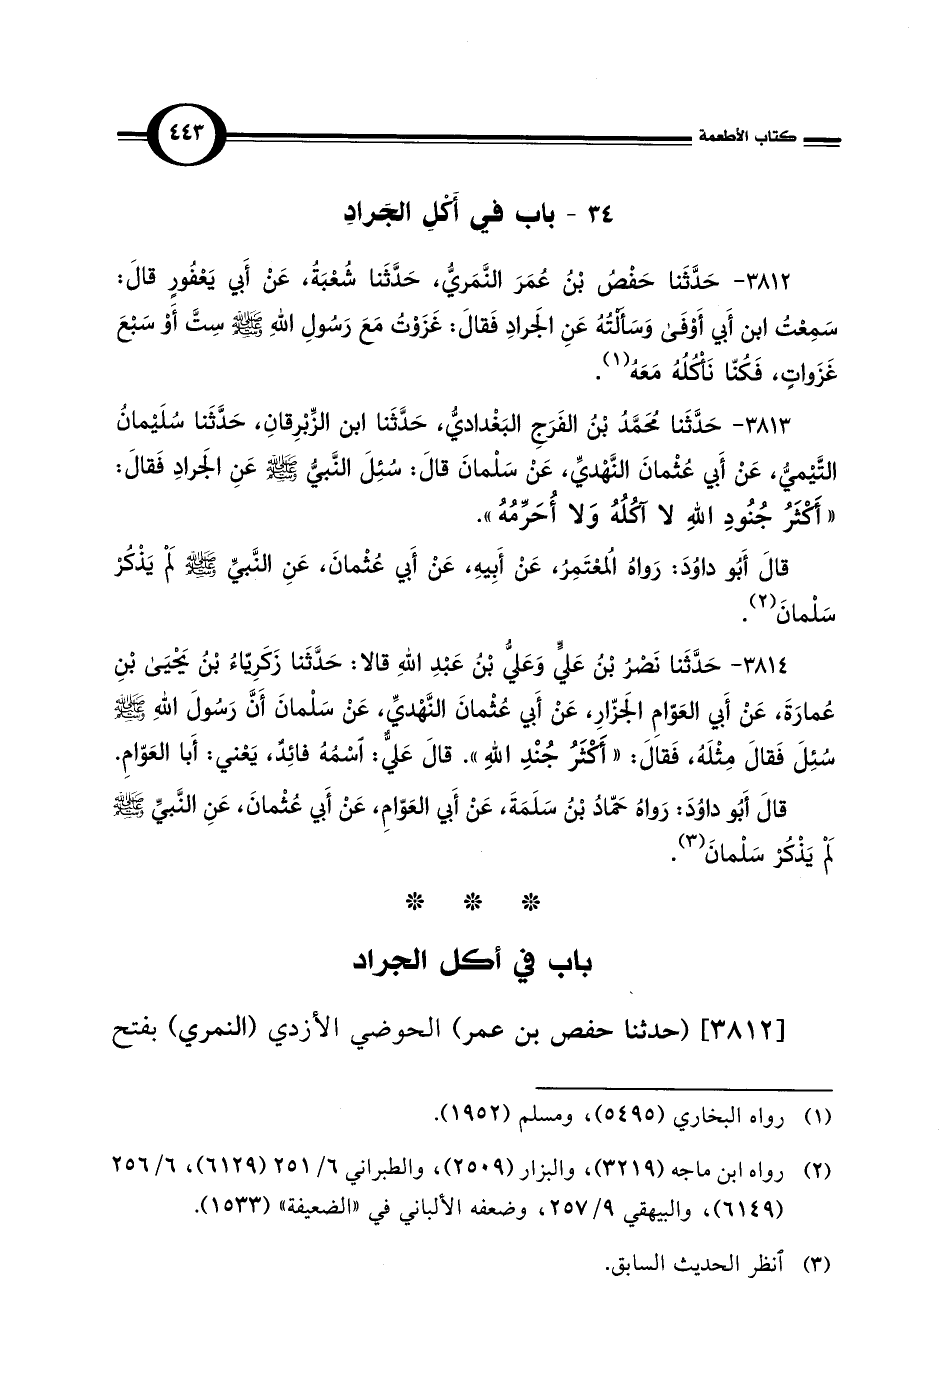 كتاب الأطعمة
٤٤٣
٣٤ - باب في أَكْلِ الجَرادِ
٣٨١٢- حَدَّثَنا حَفْصُ بْنُ عُمَرَ النَّمَريُّ، حَدَّثَنا شُعْبَةُ، عَنْ أَبي يَعْفُورٍ قالَ:
سَمِعْتُ ابن أَبي أَوْفَىٰ وَسَأَلْتُهُ عَنِ الجَرادِ فَقالَ: غَزَوْتُ مَعَ رَسُولِ اللهِ ﷺ سِتَّ أَوْ سَبْعَ
غَزَواتٍ، فَكُنّا نَأْكُلُهُ مَعَهُ(١).
٣٨١٣- حَدَّثَنا مُحَمَّدُ بْنُ الفَرَجِ البَغْداديُّ، حَدَّثَنا ابن الزِّبْرِقانِ، حَدَّثَنا سُلَيْمانُ
التَّيْميُّ، عَنْ أَبي عُثْمانَ النَّهْديِّ، عَنْ سَلْمانَ قالَ: سُئِلَ النَّبيُّ ﷺ عَنِ الجَرادِ فَقالَ:
« أَكْثَرُ جُنُودِ اللهِ لا آكُلُهُ وَلا أُحَرِّمُهُ ».
قالَ أَبُو داوُدَ: رَواهُ المُعْتَمِرُ، عَنْ أَبِيهِ، عَنْ أَبي عُثْمانَ، عَنِ النَّبيِّ ﷺ لَمْ يَذْكُرْ
سَلْمانَ(٢).
٣٨١٤- حَدَّثَنا نَصْرُ بْنُ عَليٍّ وَعَليُّ بْنُ عَبْدِ اللهِ قالا: حَدَّثَنا زَكَرِيّاءُ بْنُ يَحْيَىٰ بْنِ
عُمارَةَ، عَنْ أَبي العَوّامِ الجَزّارِ، عَنْ أَبي عُثْمانَ النَّهْديِّ، عَنْ سَلْمانَ أَنَّ رَسُولَ اللهِ ﷺ
سُئِلَ فَقالَ مِثْلَهُ، فَقالَ: « أَكْثَرُ جُنْدِ اللهِ ». قالَ عَليٌّ: ٱسْمُهُ فائِدٌ، يَعْني: أَبا العَوّامِ.
قالَ أَبُو داوُدَ: رَواهُ حَمّادُ بْنُ سَلَمَةَ، عَنْ أَبي العَوّامِ، عَنْ أَبي عُثْمانَ، عَنِ النَّبيِّ ﷺ
لَمْ يَذْكُرْ سَلْمانَ(٣).
* * *
باب في أكل الجراد
[٣٨١٢] (حدثنا حفص بن عمر) الحوضي الأزدي (النمري) بفتح
(١) رواه البخاري (٥٤٩٥)، ومسلم (١٩٥٢).
(٢) رواه ابن ماجه (٣٢١٩)، والبزار (٢٥٠٩)، والطبراني ٦/ ٢٥١ (٦١٢٩)، ٦/ ٢٥٦
(٦١٤٩)، والبيهقي ٩/ ٢٥٧، وضعفه الألباني في «الضعيفة» (١٥٣٣).
(٣) ٱنظر الحديث السابق.